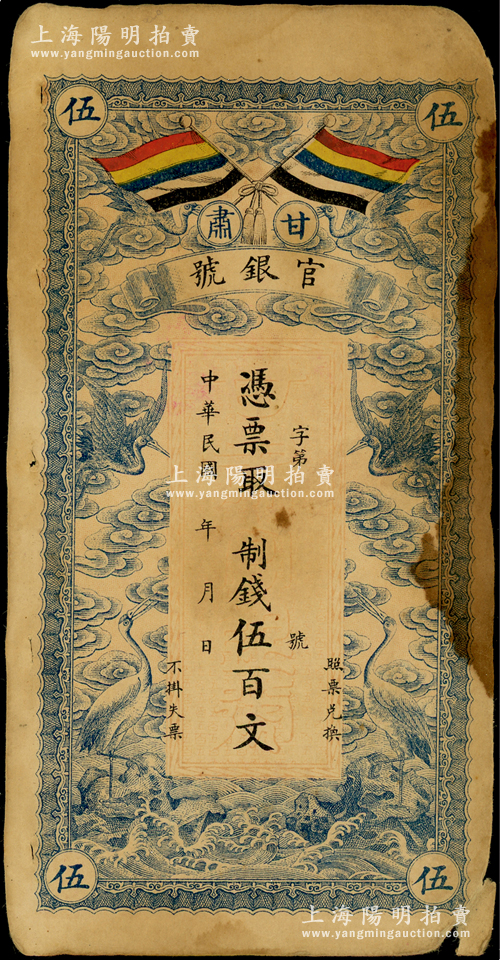 上海陽明拍賣
www.yangmingauction.com
伍
伍
甘肅
官銀號
照票兌換
字第 號
憑票取 制錢伍百文
中華民國 年 月 日
不掛失票
上海陽明拍賣
www.yangmingauction.com
伍
伍
上海陽明拍賣
www.yangmingauction.com